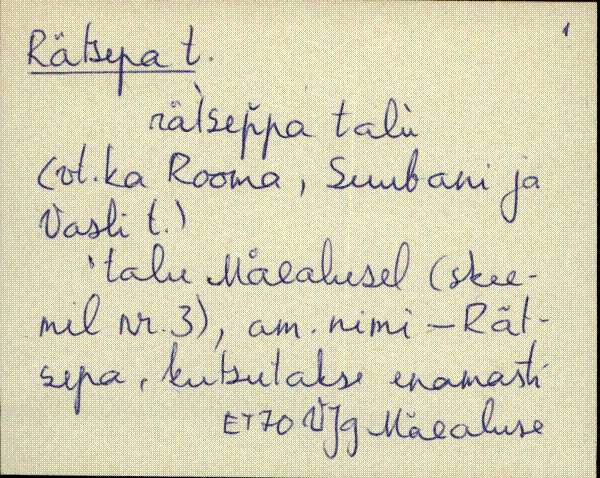 1
Rätsepa t.
rä̀tsep̌pa talù
(vt. ka Rooma, Suubani ja
Vasli t.)
'talu Mäealusel (skee-
mil nr. 3), am. nimi – Rät-
sepa, kutsutakse enamasti
ET70 VJg Mäealuse